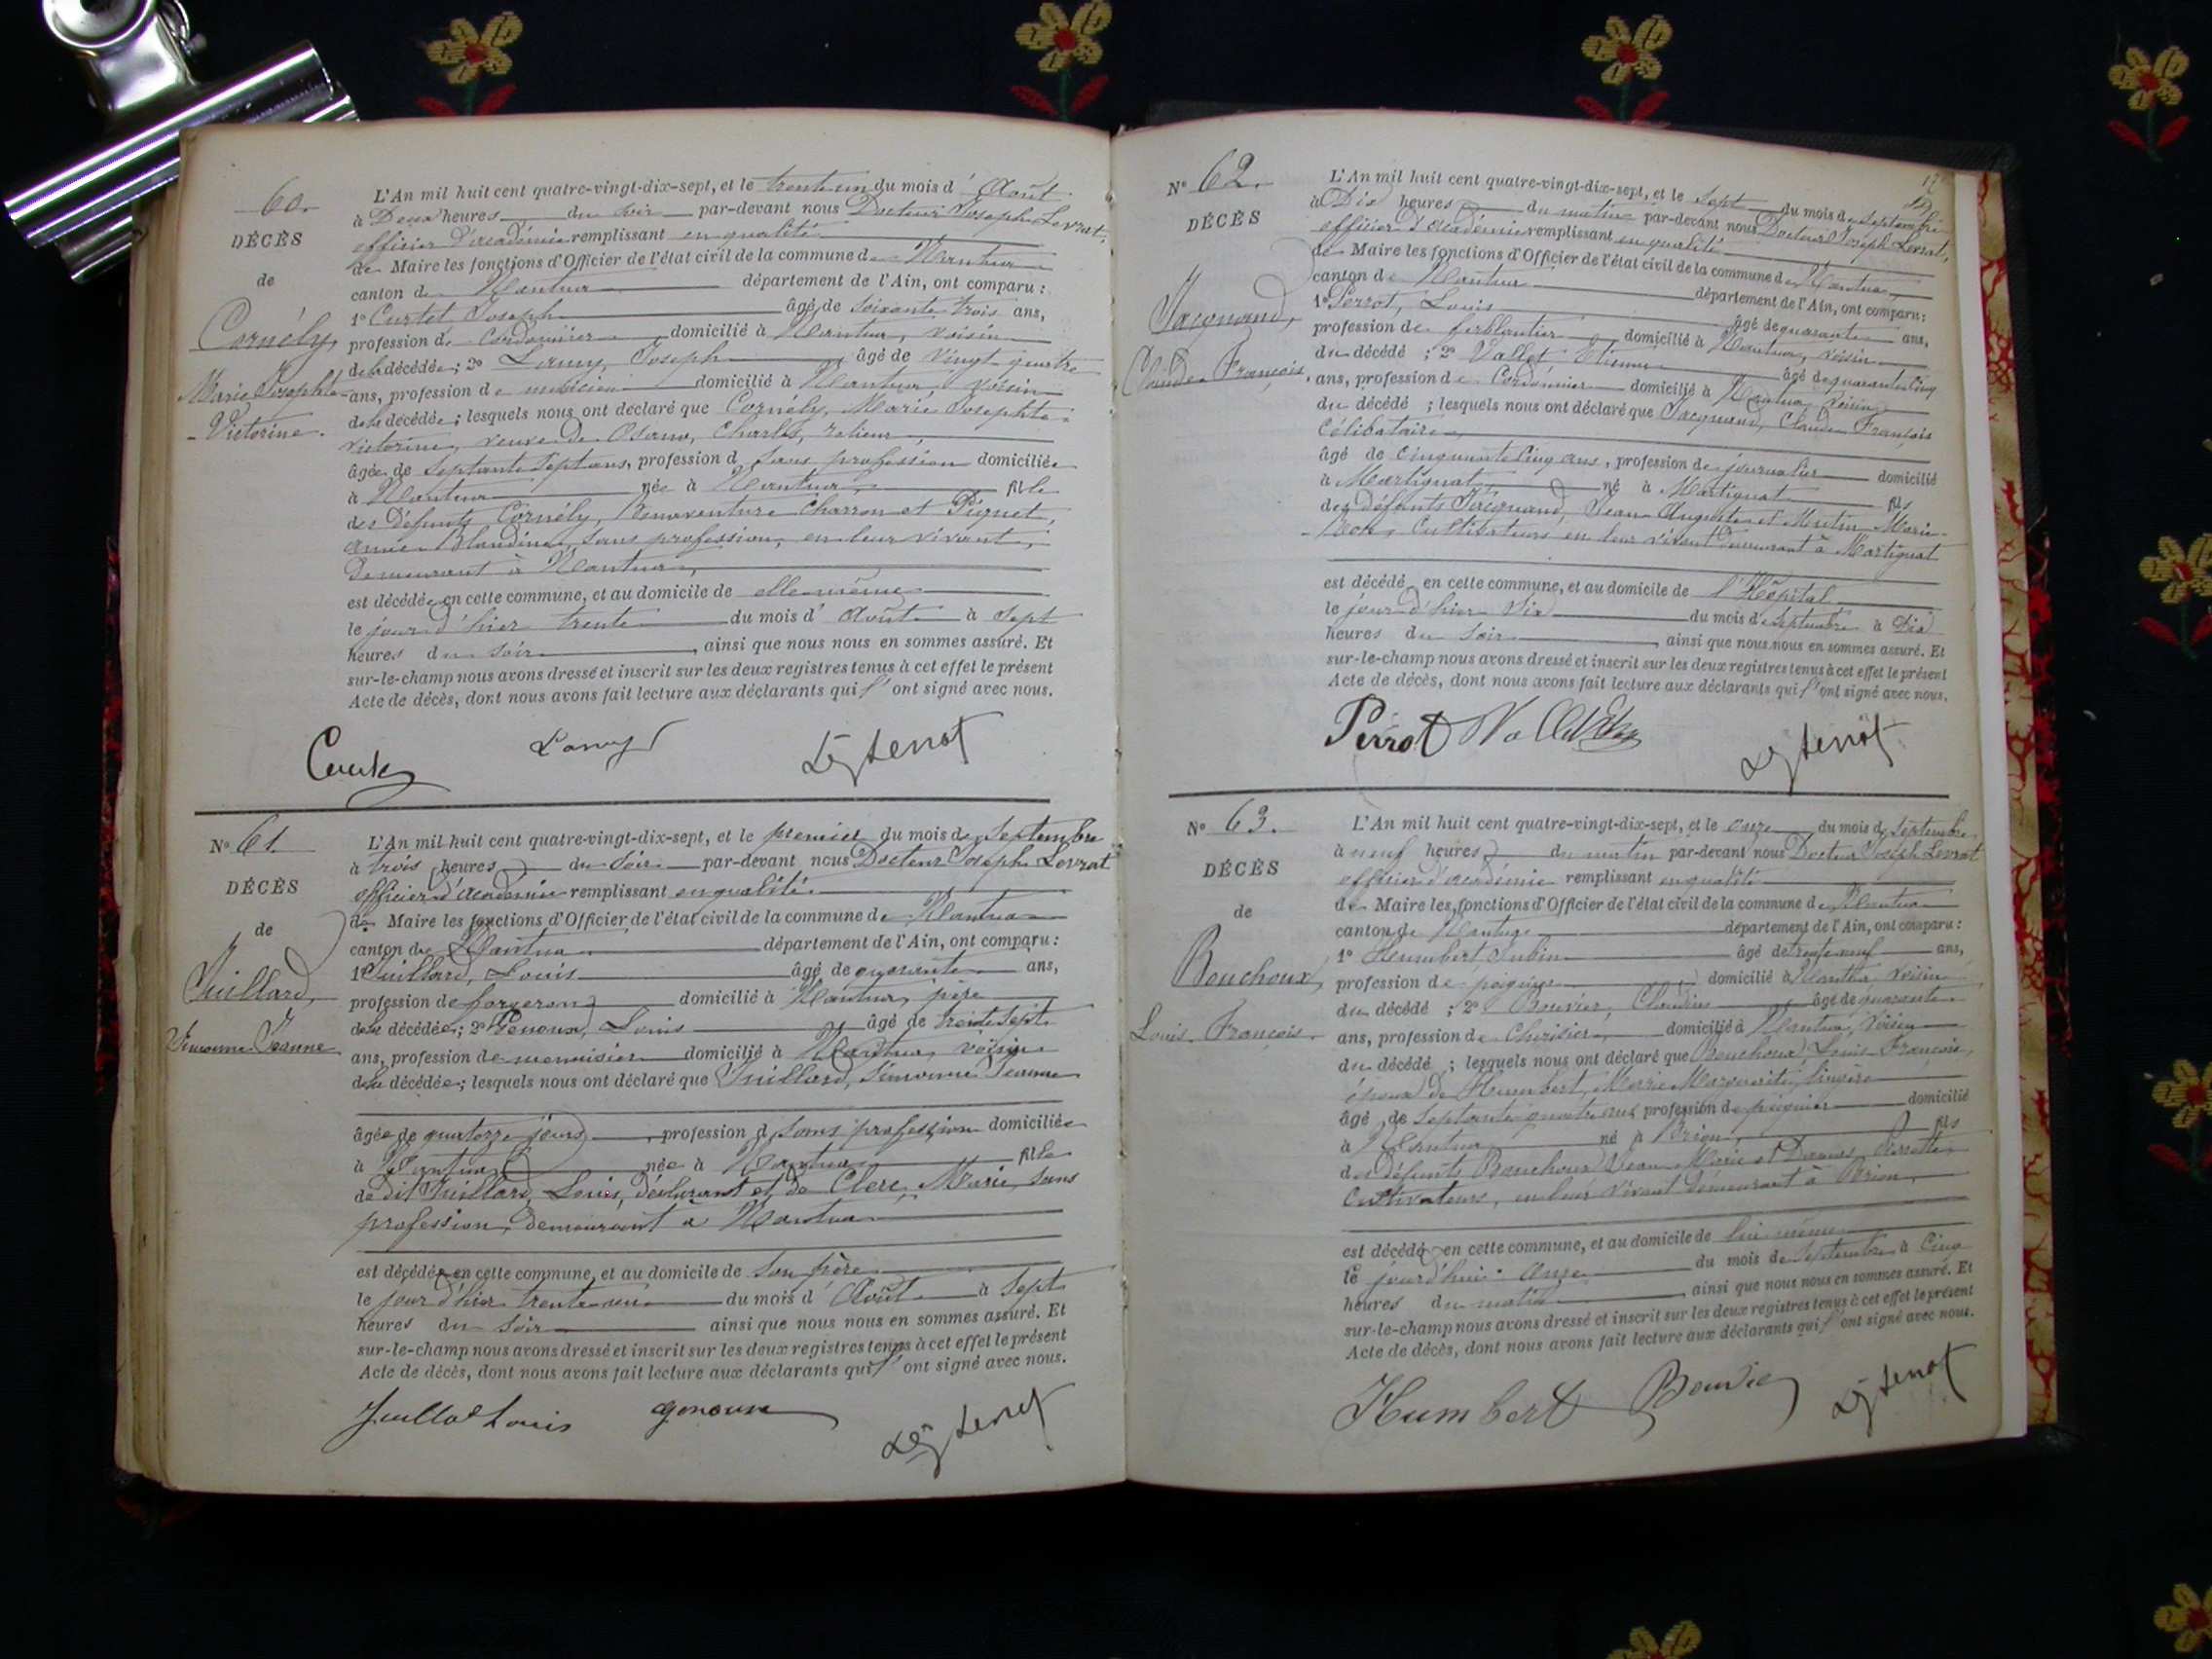 60.
DÉCÈS
de
Cornély,
Marie Josephte
Victorine.
L'An mil huit cent quatre-vingt-dix-sept, et le trente un du mois d' Août
à Deux heures du soir par-devant nous Docteur Joseph Levrat,
officier d'académie remplissant en qualité
de Maire les fonctions d'Officier de l'état civil de la commune de Nantua
canton de Nantua département de l'Ain, ont comparu :
1° Curtet Joseph âgé de soixante trois ans,
profession de cordonnier domicilié à Nantua, voisin
de la décédée ; 2° Lamy, Joseph âgé de vingt quatre
ans, profession de musicien domicilié à Nantua voisin
de la décédée ; lesquels nous ont déclaré que Cornély, Marie Josephte
Victorine, veuve de Osano, Charles, relieur,
âgée de septante sept ans, profession d sans profession domiciliée
à Nantua née à Nantua fille
des défunts Cornély, Bonaventure Charron et Piquet,
Annie Blandine, sans profession, en leur vivant,
demeurant à Nantua,
est décédée en cette commune, et au domicile de elle même
le jour d'hier trente du mois d' Août à sept
heures du soir, ainsi que nous nous en sommes assuré. Et
sur-le-champ nous avons dressé et inscrit sur les deux registres tenus à cet effet le présent
Acte de décès, dont nous avons fait lecture aux déclarants qui l'ont signé avec nous.
Lamy
N° 61.
DÉCÈS
de
Juillard,
Simonne Jeanne
L'An mil huit cent quatre-vingt-dix-sept, et le premier du mois de septembre
à trois heures du soir par-devant nous Docteur Joseph Levrat
officier d'académie remplissant en qualité
de Maire les fonctions d'Officier de l'état civil de la commune de Nantua
canton de Nantua département de l'Ain, ont comparu :
1° Juillard, Louis âgé de quarante ans,
profession de forgeron domicilié à Nantua, père
de la décédée ; 2° Genoux, Louis âgé de trente sept
ans, profession de menuisier domicilié à Nantua, voisin
de la décédée ; lesquels nous ont déclaré que Juillard, Simonne Jeanne
âgée de quatorze jours, profession d sans profession domiciliée
à Nantua née à Nantua fille
de dit Juillard, Louis, déclarant et de Clerc, Marie, sans
profession, demeurant à Nantua
est décédée en cette commune, et au domicile de son père
le jour d'hier trente un du mois d' Août à sept
heures du soir ainsi que nous nous en sommes assuré. Et
sur-le-champ nous avons dressé et inscrit sur les deux registres tenus à cet effet le présent
Acte de décès, dont nous avons fait lecture aux déclarants qui l'ont signé avec nous.
Juillard Louis genoux
N° 62.
DÉCÈS
Jacquand,
Claude François.
L'An mil huit cent quatre-vingt-dix-sept, et le sept du mois de septembre
à Dix heures du matin par-devant nous Docteur Joseph Levrat,
officier d'académie remplissant en qualité
de Maire les fonctions d'Officier de l'état civil de la commune de Nantua,
canton de Nantua département de l'Ain, ont comparu :
1° Perrot, Louis âgé de quarante ans,
profession de ferblantier domicilié à Nantua, voisin
du décédé ; 2° Vallet Etienne âgé de quarante cinq
ans, profession de Cordonnier domicilié à Nantua, voisin
du décédé ; lesquels nous ont déclaré que Jacquand, Claude François
Célibataire,
âgé de cinquante cinq ans, profession de journalier domicilié
à Martignat, né à Martignat fils
des défunts Jacquand, Jean Auguste et Marie
Cultivateurs en leur vivant demeurant à Martignat
est décédé en cette commune, et au domicile de l'Hôpital
le jour d'hier six du mois de septembre à Dix
heures du soir, ainsi que nous nous en sommes assuré. Et
sur-le-champ nous avons dressé et inscrit sur les deux registres tenus à cet effet le présent
Acte de décès, dont nous avons fait lecture aux déclarants qui l'ont signé avec nous.
Perrot
N° 63.
DÉCÈS
de
Bouchoux,
Louis François.
L'An mil huit cent quatre-vingt-dix-sept, et le onze du mois de septembre
à neuf heures du matin par-devant nous Docteur Joseph Levrat
officier d'académie remplissant en qualité
de Maire les fonctions d'Officier de l'état civil de la commune de Nantua
canton de Nantua département de l'Ain, ont comparu :
1° Humbert Aubin âgé de trente neuf ans,
profession de peignier domicilié à Nantua, voisin
du décédé ; 2° Bouvier, Claudius âgé de quarante
ans, profession de domicilié à Nantua, voisin
du décédé ; lesquels nous ont déclaré que Bouchoux, Louis François,
époux de Humbert, Marie Marguerite, lingère
âgé de septante quatre ans profession de peignier domicilié
à Nantua né à Brion, fils
des défunts Bouchoux, Jean Marie et Pierrette,
Cultivateurs, en leur vivant demeurant à Brion,
est décédé en cette commune, et au domicile de lui même
le jourd'hui onze du mois de septembre à Cinq
heures du matin, ainsi que nous nous en sommes assuré. Et
sur-le-champ nous avons dressé et inscrit sur les deux registres tenus à cet effet le présent
Acte de décès, dont nous avons fait lecture aux déclarants qui l'ont signé avec nous.
Humbert Bouvier